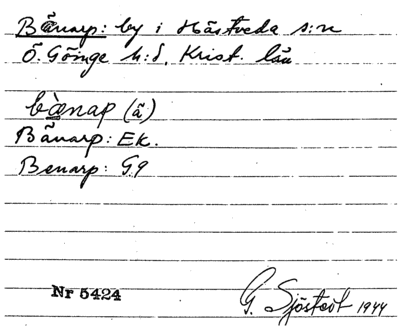 Bånarp: by i Hästveda s:n
Ö. Göinge h:d, Krist. län
bånap (ā)
Bånarp: EK.
Benarp: G.9
Nr 5424
G. Sjöstedt 1944